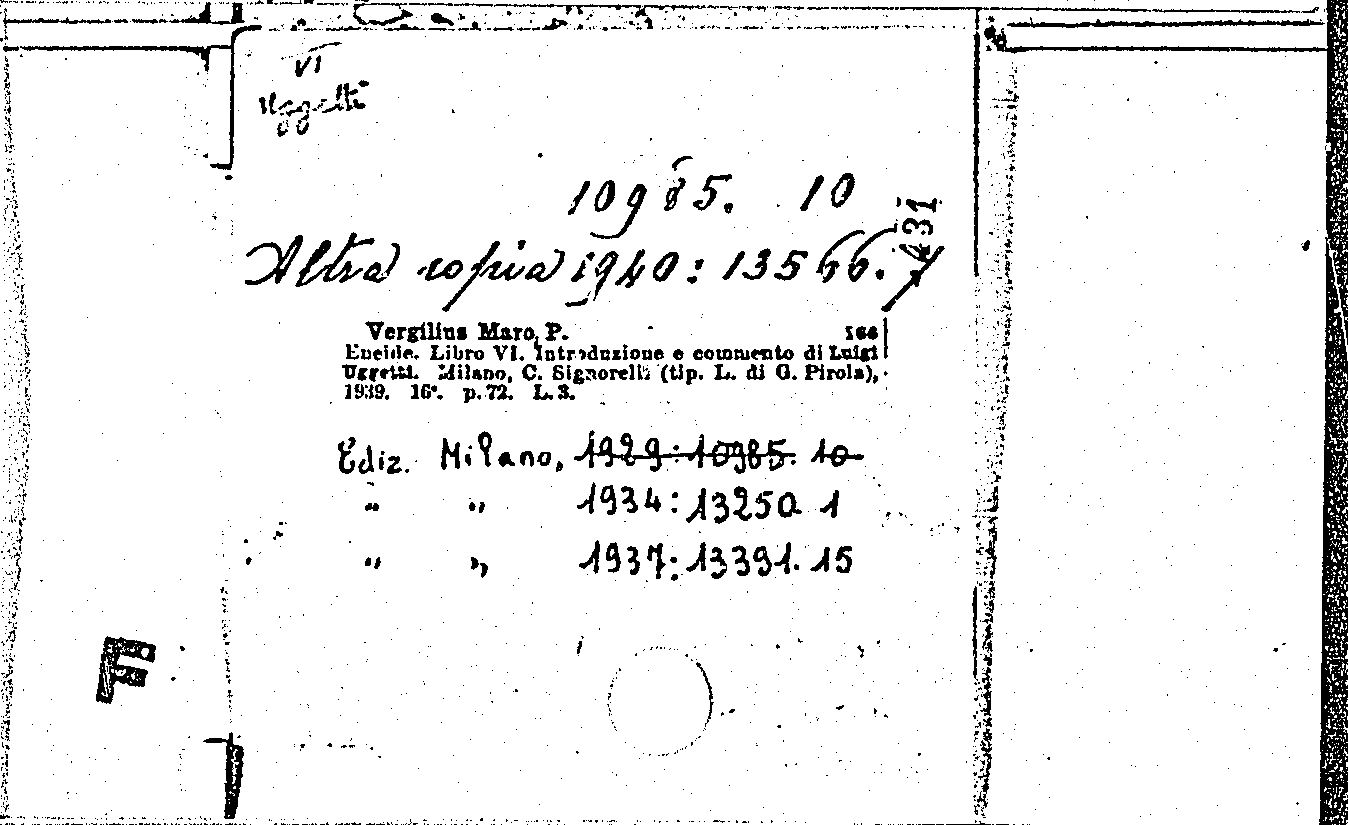 VI
Uggetti
10985. 10
431
Altra copia 1940: 13566. 7
Vergilius Maro, P. 166
Eneide. Libro VI. Introduzione e commento di Luigi
Uggetti. Milano, C. Signorelli (tip. L. di G. Pirola),
1939. 16°. p. 72. L. 3.
Ediz. Milano, 1929: 10985. 10
" " 1934: 13250. 1
" " 1937: 13391. 15
F